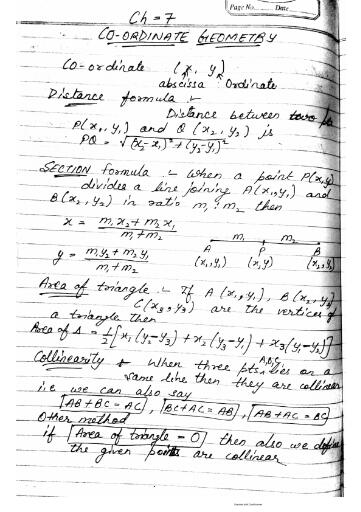 Page No. Date
Ch = 7
CO-ORDINATE GEOMETRY
Co-ordinate (x, y)
abscissa Ordinate
Distance formula :-
Distance between
P(x₁, y₁) and Q(x₂, y₂) is
PQ = √(x₂-x₁)²+(y₂-y₁)²
SECTION formula :- When a point P(x,y)
divides a line joining A(x₁,y₁) and
B(x₂, y₂) in ratio m₁:m₂ then
x = m₁x₂+m₂x₁ / m₁+m₂
m₁ m₂
A P B
(x₁,y₁) (x,y) (x₂,y₂)
y = m₁y₂+m₂y₁ / m₁+m₂
Area of triangle :- If A(x₁,y₁), B(x₂,y₂)
C(x₃,y₃) are the vertices of
a triangle then
Area of Δ = 1/2[x₁(y₂-y₃)+x₂(y₃-y₁)+x₃(y₁-y₂)]
Collinearity :- When three pts A,B,C lies on a
same line then they are collinear
i.e we can also say
AB+BC=AC, BC+AC=AB, AB+AC=BC
Other method
if Area of triangle = 0 then also we define
the given points are collinear